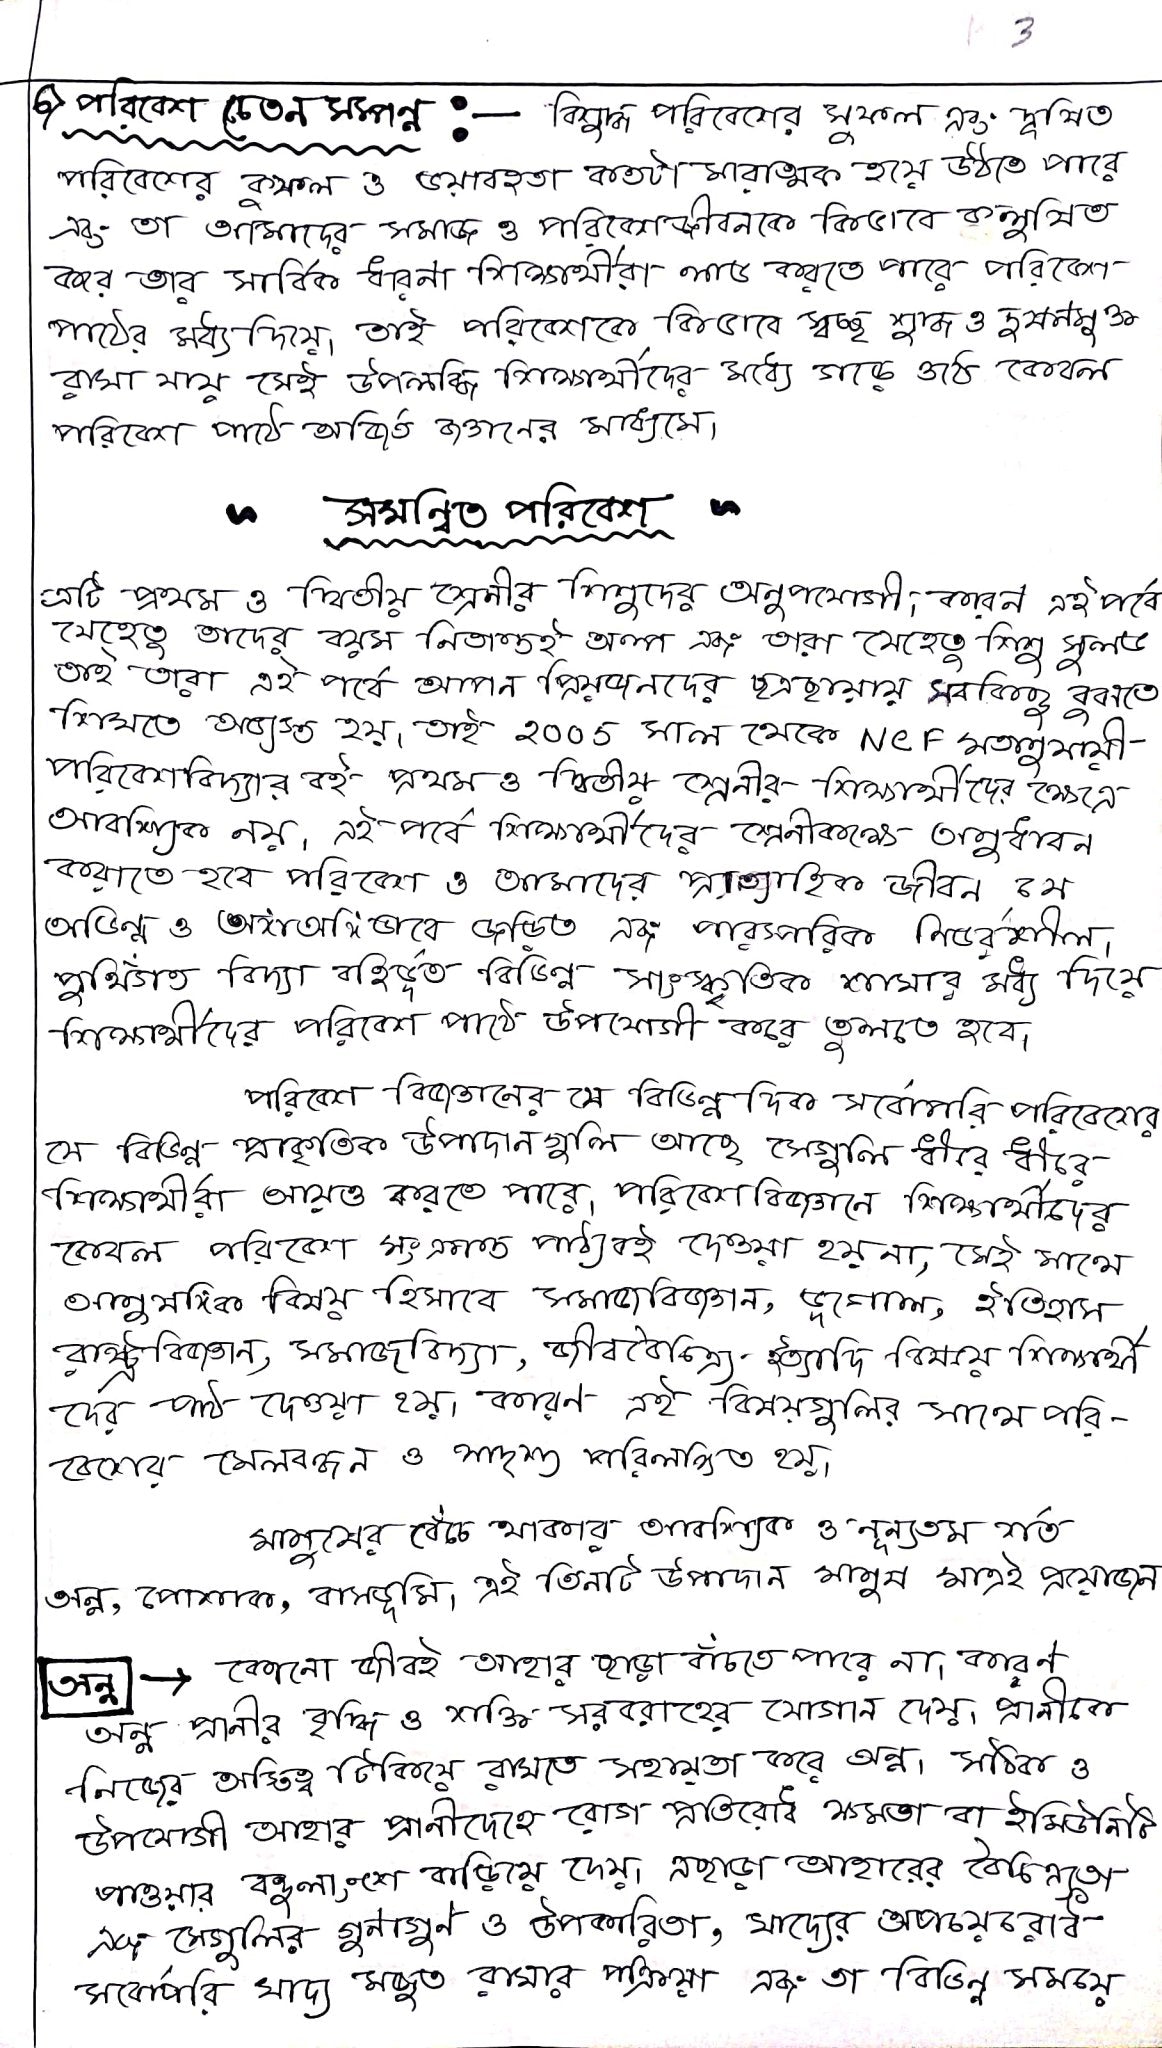 3
৬) পরিবেশ চেতন সম্পন্ন :— বিশুদ্ধ পরিবেশের সুফল এবং দূষিত
পরিবেশের কুফল ও ভয়াবহতা কতটা মারাত্মক হয়ে উঠতে পারে
এবং তা আমাদের সমাজ ও পরিবেশজীবনকে কিভাবে কলুষিত
করে তার সার্বিক ধারনা শিক্ষার্থীরা লাভ করতে পারে পরিবেশ
পাঠের মধ্য দিয়ে। তাই পরিবেশকে কিভাবে স্বচ্ছ শুদ্ধ ও দুষনমুক্ত
রাখা যায় সেই উপলব্ধি শিক্ষার্থীদের মধ্যে গড়ে ওঠে কেবল
পরিবেশ পাঠে অর্জিত জ্ঞানের মাধ্যমে।
সমন্বিত পরিবেশ
এটি প্রথম ও দ্বিতীয় শ্রেনীর শিশুদের অনুপযোগী, কারন এই পর্বে
যেহেতু তাদের বয়স নিতান্তই অল্প এবং তারা যেহেতু শিশু সুলভ
তাই তারা এই পর্বে আপন প্রিয়জনদের ছত্রছায়ায় সবকিছু বুঝতে
শিখতে অভ্যস্ত হয়। তাই ২০০৫ সাল থেকে NCF মতানুযায়ী
পরিবেশবিদ্যার বই প্রথম ও দ্বিতীয় শ্রেনীর শিক্ষার্থীদের ক্ষেত্রে
আবশ্যিক নয়। এই পর্বে শিক্ষার্থীদের শ্রেনীকক্ষে অনুধাবন
করাতে হবে পরিবেশ ও আমাদের প্রাত্যাহিক জীবন যে
অভিন্ন ও অঙ্গাঅঙ্গিভাবে জড়িত এবং পারস্পরিক নির্ভরশীল।
পুথিঁগত বিদ্যা বহির্ভূত বিভিন্ন সাংস্কৃতিক শাখার মধ্য দিয়ে
শিক্ষার্থীদের পরিবেশ পাঠে উপযোগী করে তুলতে হবে।
পরিবেশ বিজ্ঞানের যে বিভিন্ন দিক সর্বোপরি পরিবেশের
যে বিভিন্ন প্রাকৃতিক উপাদানগুলি আছে সেগুলি ধীরে ধীরে
শিক্ষার্থীরা আয়ত্ত করতে পারে। পরিবেশবিজ্ঞানে শিক্ষার্থীদের
কেবল পরিবেশ সংক্রান্ত পাঠ্যবই দেওয়া হয় না, সেই সাথে
আনুষঙ্গিক বিষয় হিসাবে সমাজবিজ্ঞান, ভূগোল, ইতিহাস
রাষ্ট্রবিজ্ঞান, সমাজবিদ্যা, জীববৈচিত্র্য ইত্যাদি বিষয়ে শিক্ষার্থী
দের পাঠ দেওয়া হয়। কারণ এই বিষয়গুলির সাথে পরি-
বেশের মেলবন্ধন ও সাদৃশ্য পরিলক্ষিত হয়।
মানুষের বেঁচে থাকার আবশ্যিক ও নূন্যতম শর্ত
অন্ন, পোশাক, বাসভূমি। এই তিনটি উপাদান মানুষ মাত্রই প্রয়োজন
অন্ন → কোনো জীবই আহার ছাড়া বাঁচতে পারে না। কারণ
অন্ন প্রানীর বৃদ্ধি ও শক্তি সরবরাহের যোগান দেয়। প্রানীকে
নিজের অস্তিত্ব টিকিয়ে রাখতে সহায়তা করে অন্ন। সঠিক ও
উপযোগী আহার প্রানীদেহে রোগ প্রতিরোধ ক্ষমতা বা ইমিউনিটি
পাওয়ার বহুলাংশে বাড়িয়ে দেয়। এছাড়া আহারের
এবং সেগুলির গুনাগুণ ও উপকারিতা, খাদ্যের অপচয়রোধ
সর্বোপরি খাদ্য মজুত রাখার প্রক্রিয়া এবং তা বিভিন্ন সময়ে